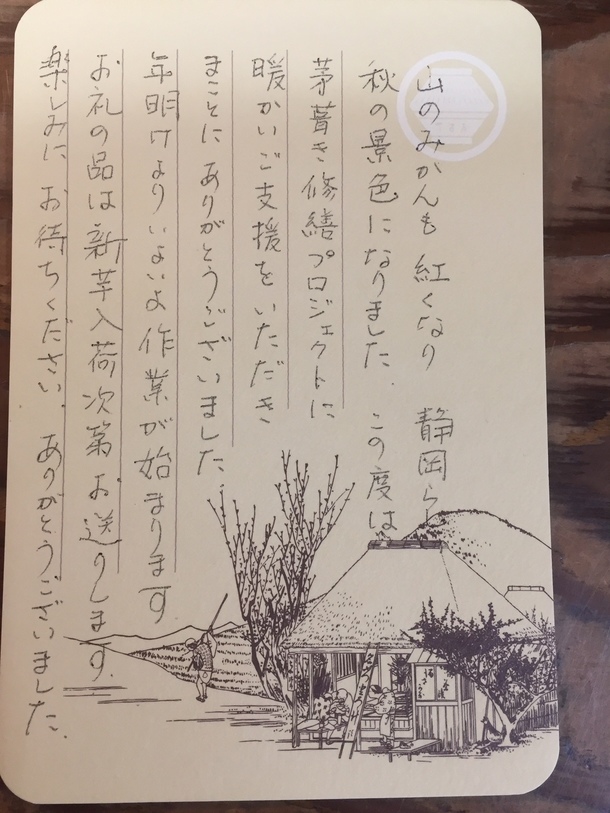 山のみかんも 紅くなり 静岡らしい
秋の景色になりました. この度は
茅葺き修繕プロジェクトに
暖かいご支援をいただき
まことに ありがとうございました.
年明けよりいよいよ作業が始まります
お礼の品は新芋入荷次第お送りします.
楽しみに お待ちください. ありがとうございました.